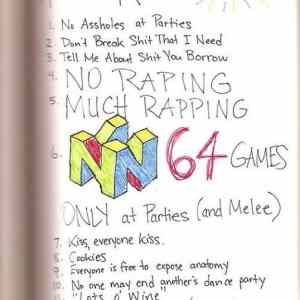 1. No Assholes at Parties
2. Don't Break Shit That I Need
3. Tell Me About Shit You Borrow
4. NO RAPING
5. MUCH RAPPING
6. N 64 GAMES
ONLY at Parties (and Melee)
7. Kiss, everyone kiss.
8. Cookies
9. Everyone is free to expose anatomy
10. No one may end another's dance party
"Lots o' Wine